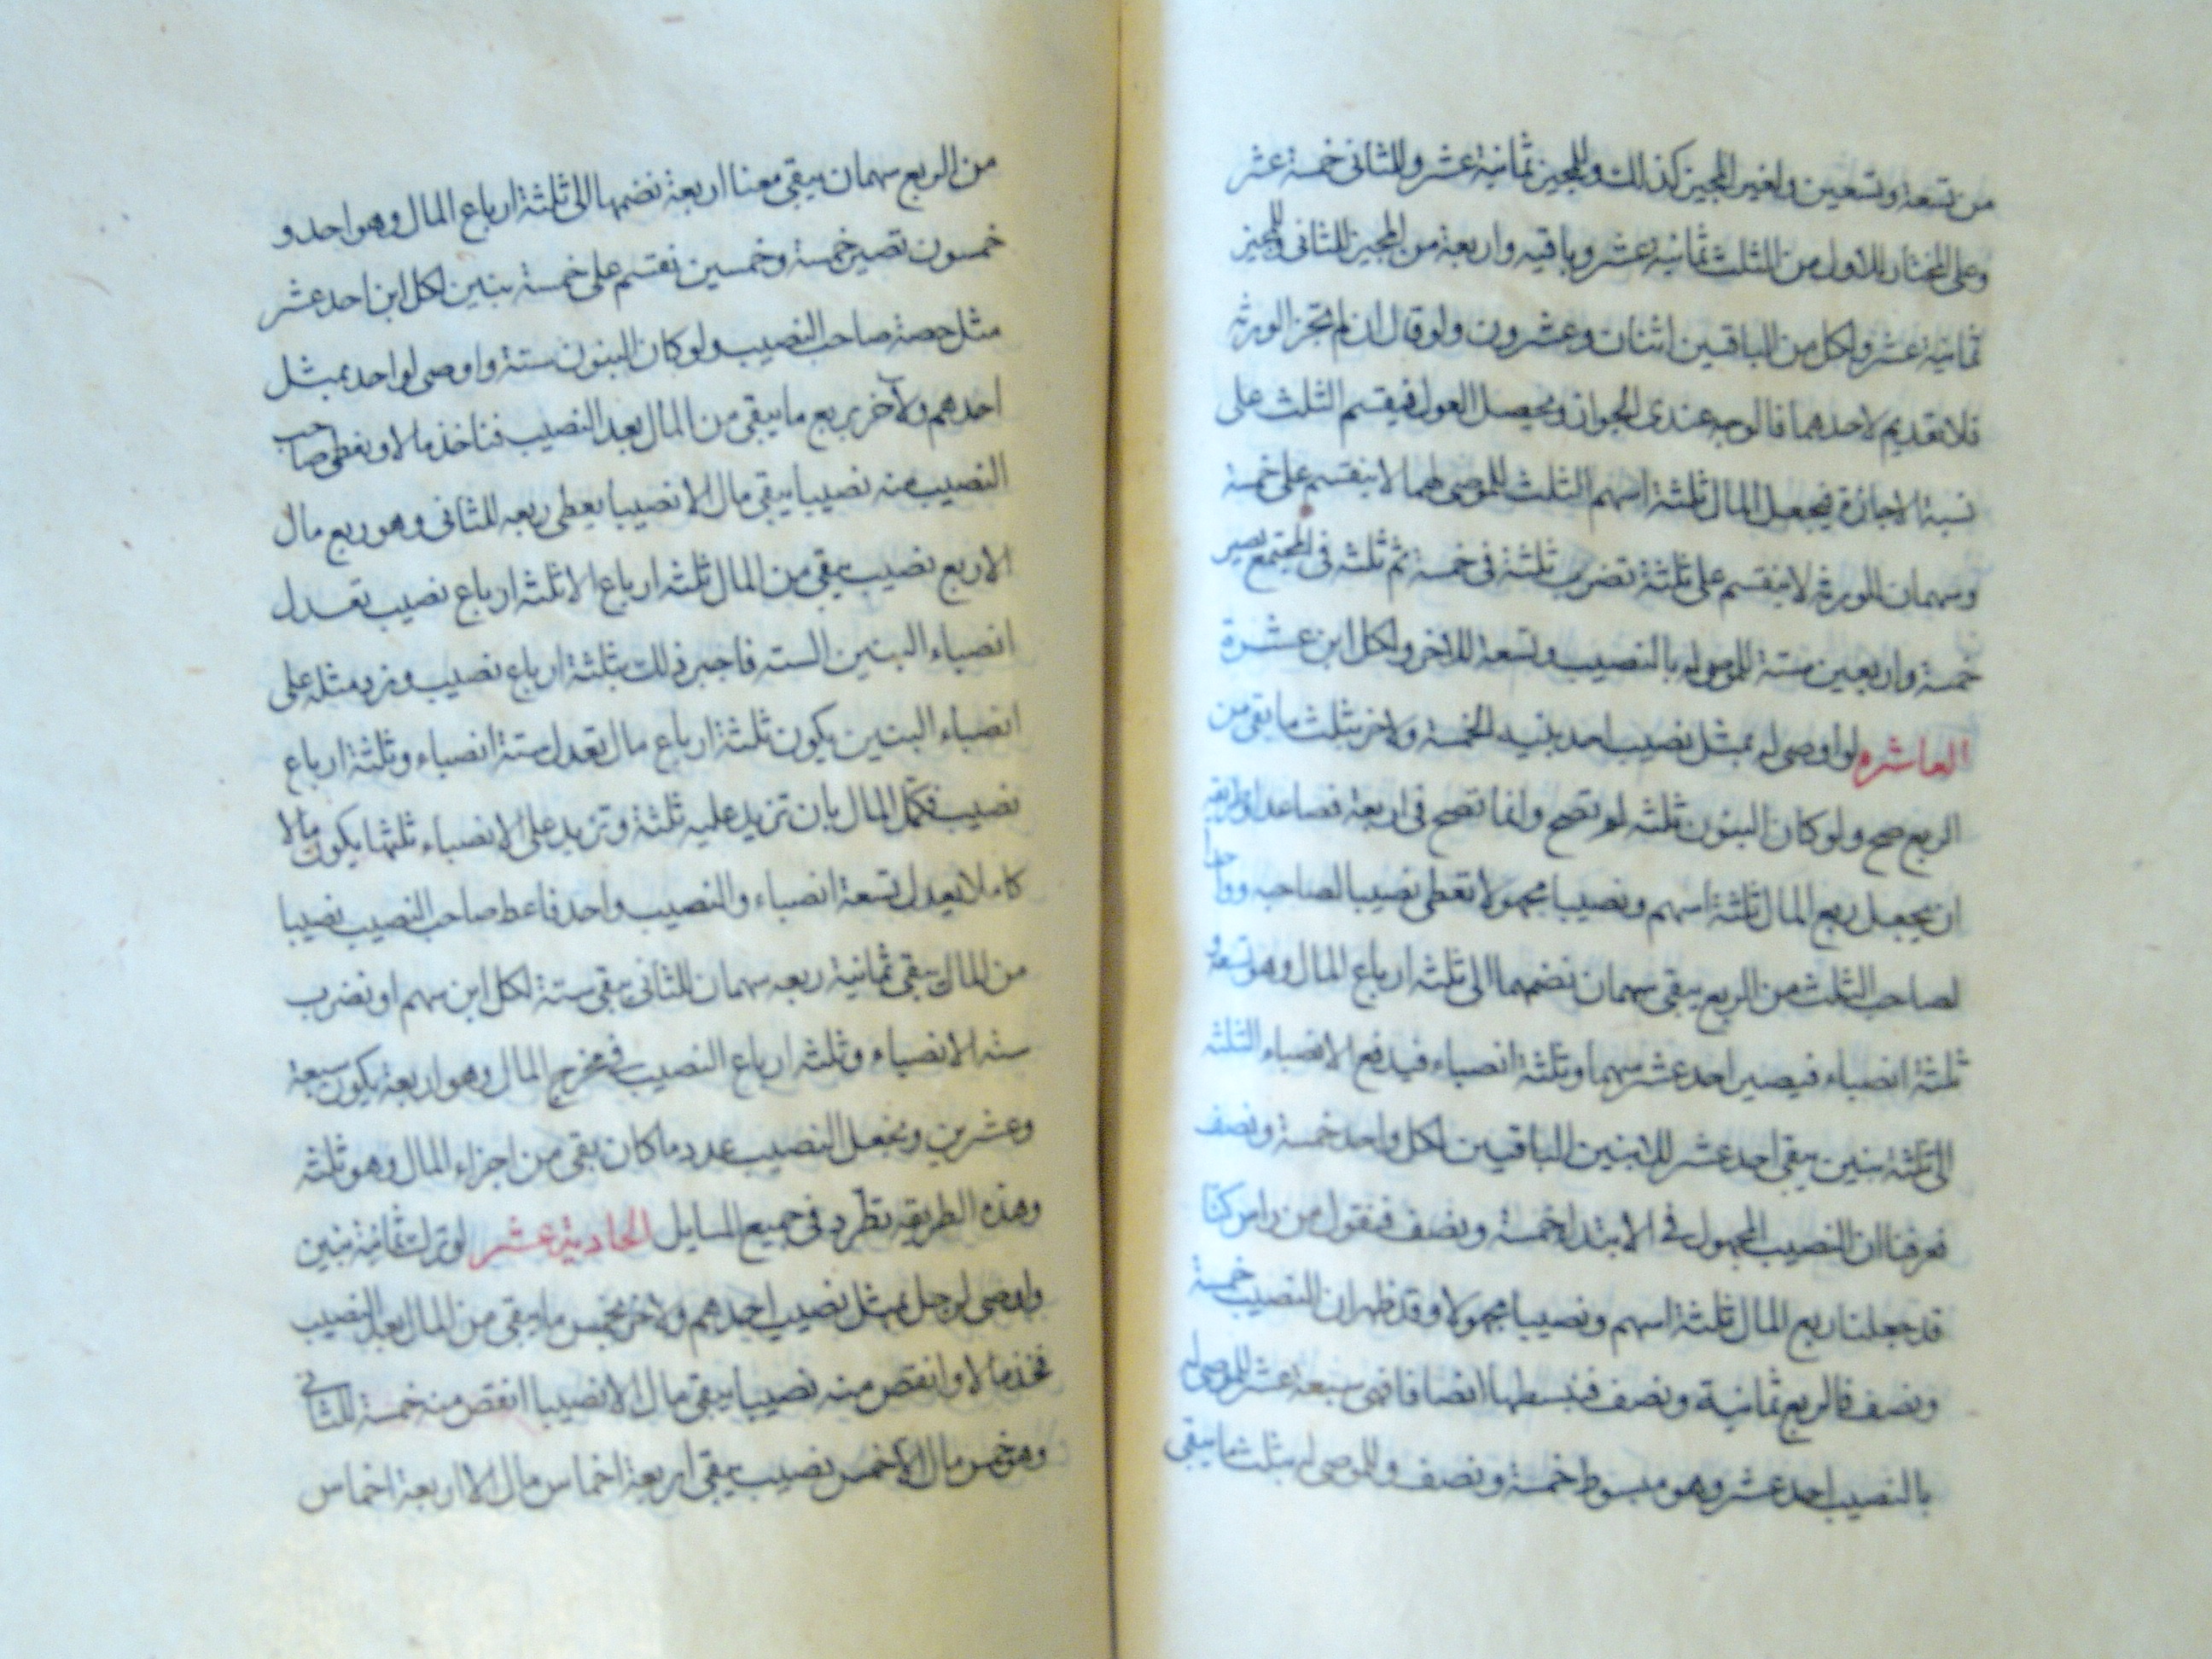 من تسعة وتسعين ولغير المجيز كذلك وللمجيز ثمانية عشر وللثاني خمسة عشر
وعلى المختار للاول من الثلث ثمانية عشر وباقيه واربعة من المجيز للثاني وللمجيز
ثمانية عشر ولكل من الباقيين اثنان وعشرون ولو قال ان لم تجز الورثة
فلا تقديم لاحدهما فالوجه عندى الجواز ويحصل العول فيقسم الثلث على
نسبة الاجازة فيجعل المال ثلثة اسهم الثلث للموصى لهما لا ينقسم على خمسة
وسهمان للورثة لا ينقسم على ثلثة تضرب ثلثة في خمسة ثم ثلثة في المجتمع تصير
خمسة واربعين ستة للموصى له بالنصيب وتسعة للاخر ولكل ابن عشرة
العاشره لو اوصى له بمثل نصيب احد بنيه الخمسة ولاخر بثلث ما بقى من
الربع صح ولو كان البنون ثلثه لم تصح وانما تصح في اربعة فصاعدا وطريقه
ان يجعل ربع المال ثلثة اسهم ونصيبا مجهولا تعطى نصيبا لصاحبه وواحدا
لصاحب الثلث من الربع يبقى سهمان نضمهما الى ثلثة ارباع المال وهو تسعة و
ثلثة انصباء فيصير احد عشر سهما وثلثة انصباء فيدفع الانصباء الثلثه
الى ثلثة بنين يبقى احد عشر للابنين الباقيين لكل واحد خمسة ونصف
فعرفنا ان النصيب المجهول في الابتداء خمسة ونصف فنقول من راس كنا
قد جعلنا ربع المال ثلثة اسهم ونصيبا مجهولا وقد ظهر ان النصيب خمسة
ونصف فالربع ثمانية ونصف فنبسطها انصافا فهى سبعة عشر للموصى له
بالنصيب احد عشر وهو مبسوط خمسة ونصف وللموصى له بثلث ما يبقى
من الربع سهمان يبقى معنا اربعة نضمها الى ثلثة ارباع المال وهو احد و
خمسون تصير خمسة وخمسين نقسم على خمسة بنين لكل ابن احد عشر
مثل حصة صاحب النصيب ولو كان البنون ستة واوصى لواحد بمثل
احدهم ولآخر بربع ما يبقى من المال بعد النصيب فناخذ مالا ونعطى صاحب
النصيب منه نصيبا يبقى مال الا نصيبا يعطى ربعه للثانى وهو ربع مال
الا ربع نصيب يبقى من المال ثلثه ارباع الا ثلثه ارباع نصيب تعدل
انصباء البنين الستة فاجبر ذلك بثلثة ارباع نصيب وزد مثله على
انصباء البنين يكون ثلثة ارباع مال تعدل ستة انصباء وثلثة ارباع
نصيب فكمل المال بان تزيد عليه ثلثة وتزيد على الانصباء ثلثها يكون مالا
كاملا يعدل تسعة انصباء والنصيب واحد فاعط صاحب النصيب نصيبا
من المال يبقى ثمانية ربعه سهمان للثاني يبقى ستة لكل ابن سهم او نضرب
سته الانصباء وثلثه ارباع النصيب في مخرج المال وهو اربعة يكون سبعة
وعشرين ونجعل النصيب عدد ما كان بقى من اجزاء المال وهو ثلثه
وهذه الطريقه تطرد في جميع المسايل الحادية عشر لو ترك ثمانية بنين
واوصى لرجل بمثل نصيب احدهم ولاخر بخمس ما يبقى من المال بعد النصيب
فخذ مالا وانقص منه نصيبا يبقى مال الا نصيبا انقص منه خمسة للثانى
وهو خمس مال الا خمس نصيب يبقى اربعة اخماس مال الا اربعة اخماس